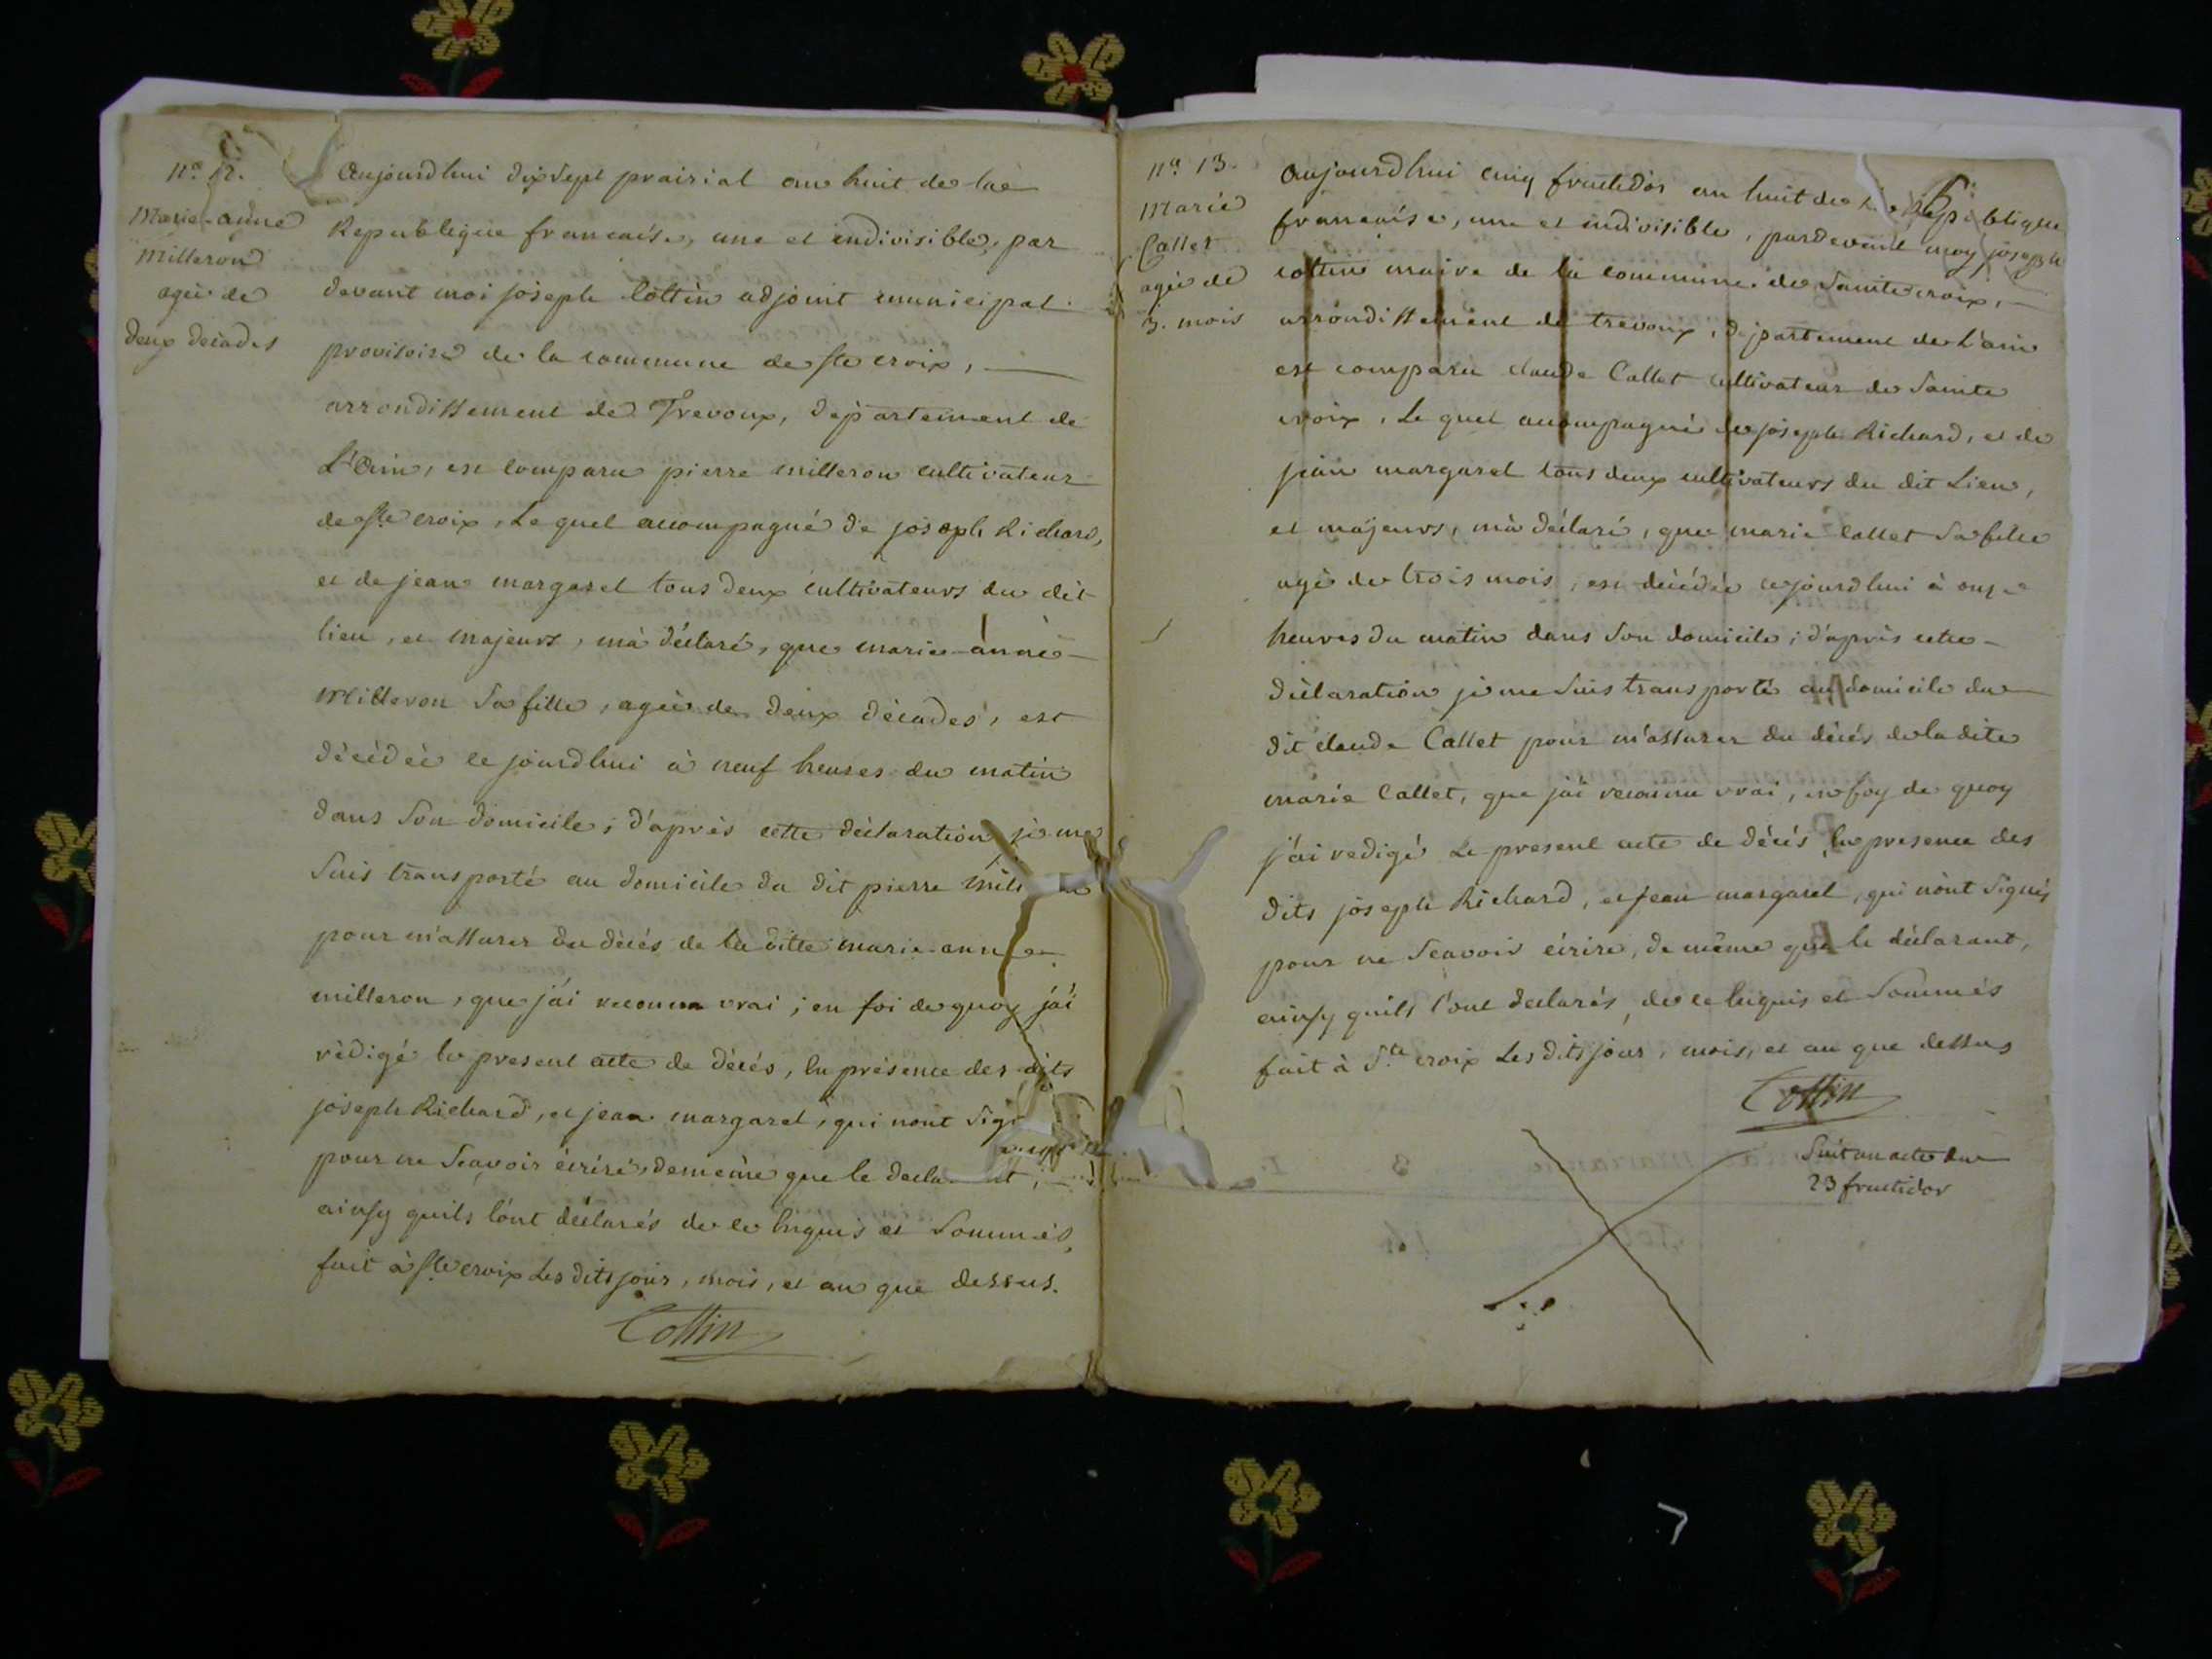 n.o 12.
Marie-anne
Milleron
agée de
deux décades
Aujourdhui dixsept prairial an huit de la
Republique francaise, une et indivisible, par
devant moi joseph Cottin adjoint municipal
provisoire de la commune de Ste croix,
arrondissement de Trevoux, département de
L'Ain, est comparu pierre milleron cultivateur
de Ste croix, Le quel accompagné de joseph Richard,
et de jean margarel tous deux cultivateurs du dit
lieu, et majeurs, m'a déclaré, que marie-anne
Milleron sa fille, agée de deux décades, est
décédée ce jourdhui à neuf heures du matin
dans son domicile; d'après cette déclaration je me
suis transporté au domicile du dit pierre
pour m'assurer du décés de la ditte marie-anne
milleron, que j'ai reconnu vrai; en foi de quoy j'ai
rédigé le present acte de décés, en présence des dits
joseph Richard, et jean margarel, qui nont
pour ne sçavoir écrire, demême que le
ainsy quils lont déclarés de ce enquis et sommés,
fait à Ste croix Les dits jour, mois, et an que dessus.
Cottin
n.o 13.
Marie
Callet
agée de
3. mois
Aujourdhui cinq fructidor an huit de la République
francaise, une et indivisible, pardevant moy joseph
cottin maire de la commune de Sainte croix,
arrondissement de trevoux, département de L'ain
est comparu claude Callet cultivateur de Sainte
croix, Le quel accompagné de joseph Richard, et de
jean margarel tous deux cultivateurs du dit Lieu,
et majeurs, m'a déclaré, que marie Callet sa fille
agé de trois mois, est décédée cejourdhui à onze
heures du matin dans son domicile; d'après cette
déclaration je me suis transporté au domicile du
dit claude Callet pour m'assurer du décés de la dite
marie Callet, que j'ai reconnu vrai, en foy de quoy
j'ai redigé Le present acte de décés en presence des
dits joseph Richard, et jean margarel, qui n'ont signés
pour ne sçavoir écrire, de même que le déclarant,
ainsy quils l'ont declarés, de ce enquis et sommés
fait à S.te croix Les dits jour, mois, et an que dessus
Cottin
Suit un acte du
23 fructidor